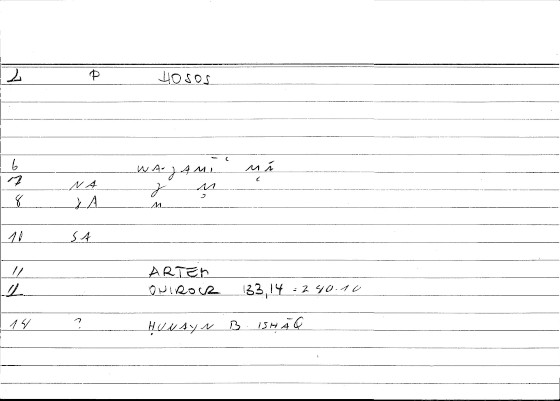 L P HOSOS
6 WA-ǧAMĪʿ MĀ
7 NA ǧ M
8 ǧA M
10 SA
11 ARTEM
12 ONIROCR 133,14 = 240.10
14 ? ḤUNAYN B ISḤĀQ